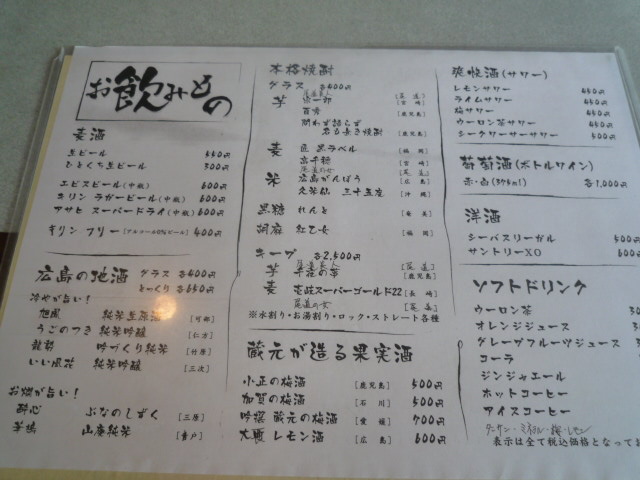 お飲みもの
麦酒
生ビール 550円
ひとくち生ビール 300円
エビスビール(中瓶) 600円
キリン ラガービール(中瓶) 600円
アサヒ スーパードライ(中瓶) 600円
キリン フリー(アルコール0%ビール) 400円
広島の地酒 グラス 各500円
とっくり 各650円
冷やが旨い！
旭鳳 純米生原酒 [可部]
うごのつき 純米吟醸 [仁方]
龍勢 吟づくり純米 [竹原]
いい風花 純米吟醸 [三次]
お燗が旨い！
酔心 ぶなのしずく [三原]
華鳩 山廃純米 [音戸]
本格焼酎
グラス 各400円
芋
百秀 [鹿児島]
問わず語らず
名も無き焼酎 [鹿児島]
麦 匠 黒ラベル [福岡]
高千穂 [宮崎]
米 広島がんぼう [広島]
久米仙 三十五度 [沖縄]
黒糖 れんと [奄美]
胡麻 紅乙女 [福岡]
キープ 各2,500円
芋 [鹿児島]
麦 壱岐スーパーゴールド22 [長崎]
※水割り・お湯割り・ロック・ストレート各種
蔵元が造る果実酒
小正の梅酒 [鹿児島] 500円
加賀の梅酒 [石川] 500円
吟撰 蔵元の梅酒 [愛媛] 700円
大瓶 レモン酒 [広島] 600円
爽快酒(サワー)
レモンサワー 450円
ライムサワー 450円
梅サワー 450円
ウーロン茶サワー 450円
シークワーサーサワー 550円
葡萄酒(ボトルワイン)
赤・白(375ml) 各1,000円
洋酒
シーバスリーガル 500円
サントリーXO 600円
ソフトドリンク
ウーロン茶
オレンジジュース
グレープフルーツジュース
コーラ
ジンジャエール
ホットコーヒー
アイスコーヒー
表示は全て税込価格となってお